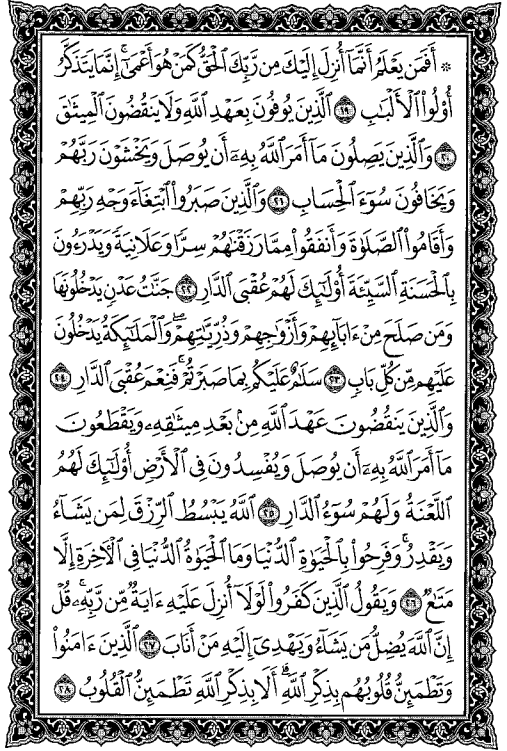 ۞ أَفَمَن يَعْلَمُ أَنَّمَآ أُنزِلَ إِلَيْكَ مِن رَّبِّكَ ٱلْحَقُّ كَمَنْ هُوَ أَعْمَىٰٓ ۚ إِنَّمَا يَتَذَكَّرُ
أُو۟لُوا۟ ٱلْأَلْبَٰبِ ١٩ ٱلَّذِينَ يُوفُونَ بِعَهْدِ ٱللَّهِ وَلَا يَنقُضُونَ ٱلْمِيثَٰقَ
٢٠ وَٱلَّذِينَ يَصِلُونَ مَآ أَمَرَ ٱللَّهُ بِهِۦٓ أَن يُوصَلَ وَيَخْشَوْنَ رَبَّهُمْ
وَيَخَافُونَ سُوٓءَ ٱلْحِسَابِ ٢١ وَٱلَّذِينَ صَبَرُوا۟ ٱبْتِغَآءَ وَجْهِ رَبِّهِمْ
وَأَقَامُوا۟ ٱلصَّلَوٰةَ وَأَنفَقُوا۟ مِمَّا رَزَقْنَٰهُمْ سِرًّا وَعَلَانِيَةً وَيَدْرَءُونَ
بِٱلْحَسَنَةِ ٱلسَّيِّئَةَ أُو۟لَٰٓئِكَ لَهُمْ عُقْبَى ٱلدَّارِ ٢٢ جَنَّٰتُ عَدْنٍ يَدْخُلُونَهَا
وَمَن صَلَحَ مِنْ ءَابَآئِهِمْ وَأَزْوَٰجِهِمْ وَذُرِّيَّٰتِهِمْ ۖ وَٱلْمَلَٰٓئِكَةُ يَدْخُلُونَ
عَلَيْهِم مِّن كُلِّ بَابٍ ٢٣ سَلَٰمٌ عَلَيْكُم بِمَا صَبَرْتُمْ ۚ فَنِعْمَ عُقْبَى ٱلدَّارِ ٢٤
وَٱلَّذِينَ يَنقُضُونَ عَهْدَ ٱللَّهِ مِنۢ بَعْدِ مِيثَٰقِهِۦ وَيَقْطَعُونَ
مَآ أَمَرَ ٱللَّهُ بِهِۦٓ أَن يُوصَلَ وَيُفْسِدُونَ فِى ٱلْأَرْضِ ۙ أُو۟لَٰٓئِكَ لَهُمُ
ٱللَّعْنَةُ وَلَهُمْ سُوٓءُ ٱلدَّارِ ٢٥ ٱللَّهُ يَبْسُطُ ٱلرِّزْقَ لِمَن يَشَآءُ
وَيَقْدِرُ ۚ وَفَرِحُوا۟ بِٱلْحَيَوٰةِ ٱلدُّنْيَا وَمَا ٱلْحَيَوٰةُ ٱلدُّنْيَا فِى ٱلْأَخِرَةِ إِلَّا
مَتَٰعٌ ٢٦ وَيَقُولُ ٱلَّذِينَ كَفَرُوا۟ لَوْلَآ أُنزِلَ عَلَيْهِ ءَايَةٌ مِّن رَّبِّهِۦ ۗ قُلْ
إِنَّ ٱللَّهَ يُضِلُّ مَن يَشَآءُ وَيَهْدِىٓ إِلَيْهِ مَنْ أَنَابَ ٢٧ ٱلَّذِينَ ءَامَنُوا۟
وَتَطْمَئِنُّ قُلُوبُهُم بِذِكْرِ ٱللَّهِ ۗ أَلَا بِذِكْرِ ٱللَّهِ تَطْمَئِنُّ ٱلْقُلُوبُ ٢٨